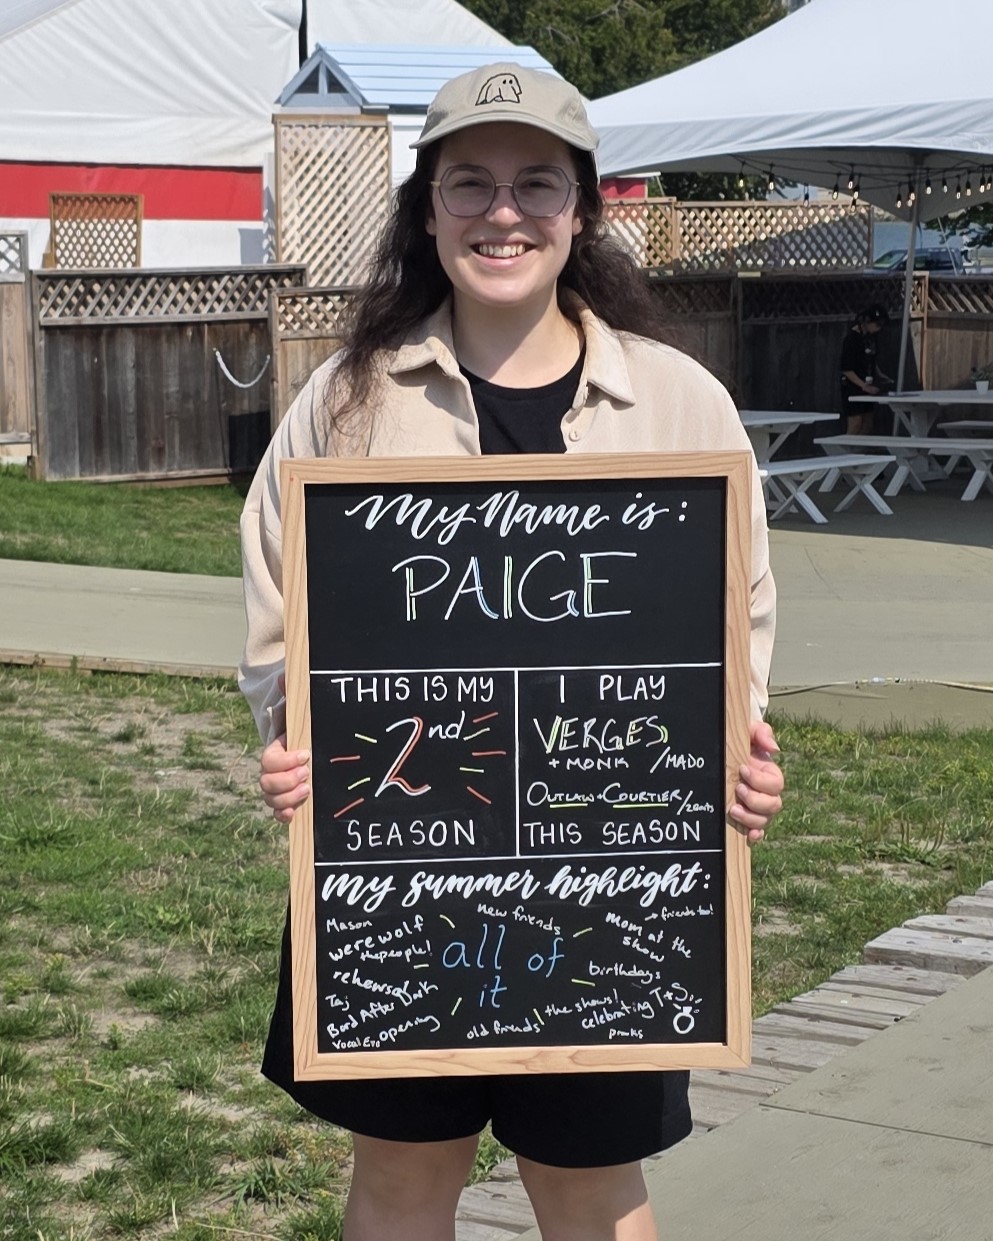 My Name is:
PAIGE
THIS IS MY
2nd
SEASON
I PLAY
VERGES
+ MONK /MADO
OUTLAW + COURTIER/2Gents
THIS SEASON
my summer highlight:
all of
it
Mason
werewolf
thepeople!
rehearsal
Taj
Bard After Dark
Vocal Eve
opening
new friends
old friends!
the shows!
celebrating T+S
pranks
birthdays
mom at the
show
→ friends too!